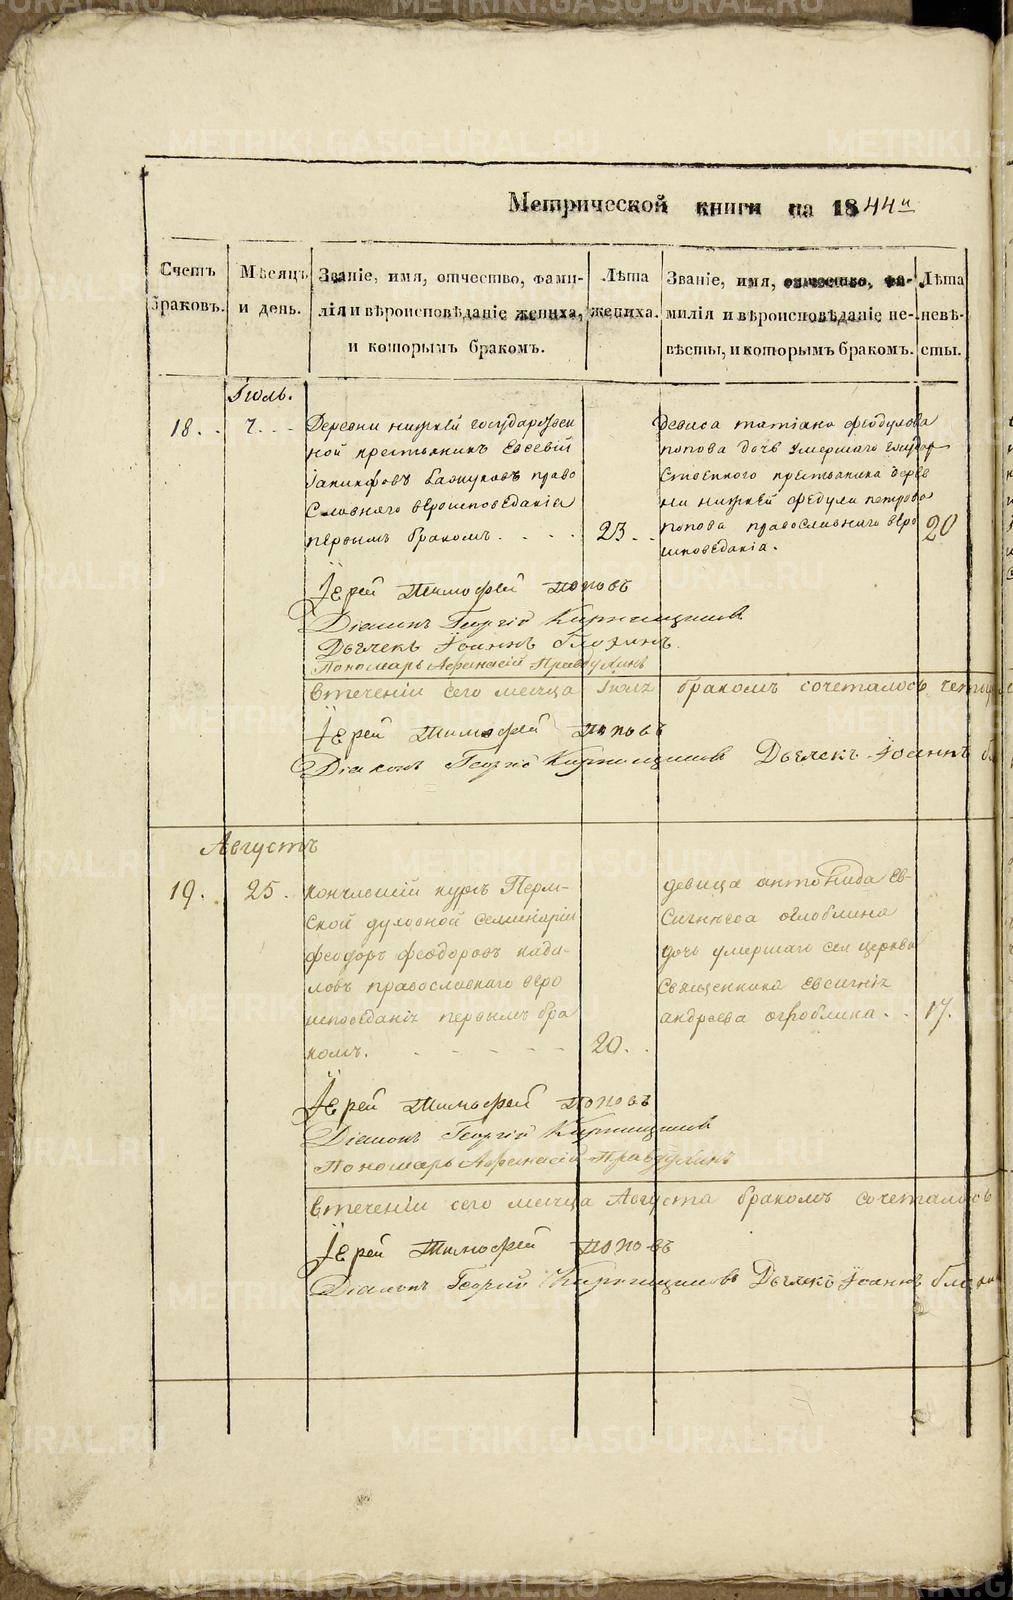 Метрической книги на 1844й
Счетъ браковъ.
Мѣсяцъ и день.
Званіе, имя, отчество, фами-
лія и вѣроисповѣданіе жениха,
и которымъ бракомъ.
Лѣта
жениха.
Званіе, имя, отчество, фа-
милія и вѣроисповѣданіе не-
вѣсты, и которымъ бракомъ.
Лѣта
невѣ-
сты.
Іюль.
18. . 7. . .
Деревни нижней государствен
ной крестьянинъ Евсевій
право
славнаго вероисповеданія
первымъ бракомъ. . . . .
23. .
девица татіана феодулова
попова дочь умершаго государ
ственного крестьянина дерев
ни нижней федула петрова
попова православнаго веро
исповеданія.
20
Іерей Тимофей Поповъ
Діаконъ Георгій Кирпищиковъ
Дьячекъ Іоаннъ
Пономарь Афанасій Правдухинъ
втеченіи сего месяца Іюля бракомъ сочеталось
Іерей Тимофей Поповъ
Діаконъ Георгій Кирпищиковъ Дьячекъ Іоаннъ
Августъ
19. 25.
кончившій курсъ Перм-
ской духовной семинаріи
феодоръ феодоровъ кади-
ловъ православнаго веро
исповеданія первымъ бра
комъ. - - - - -
20. .
девица антонида Ев-
сигніева оглоблина
дочь умершаго сея церкви
священника евсигнія
андреева оглоблина. . .
17.
Іерей Тимофей Поповъ
Діаконъ Георгій Кирпищиковъ
Пономарь Афанасій Правдухинъ
втеченіи сего месяца Августа бракомъ сочеталось
Іерей Тимофей Поповъ
Діаконъ Георгій Кирпищиковъ Дьячекъ Іоаннъ
METRIKI.GASO-URAL.RU